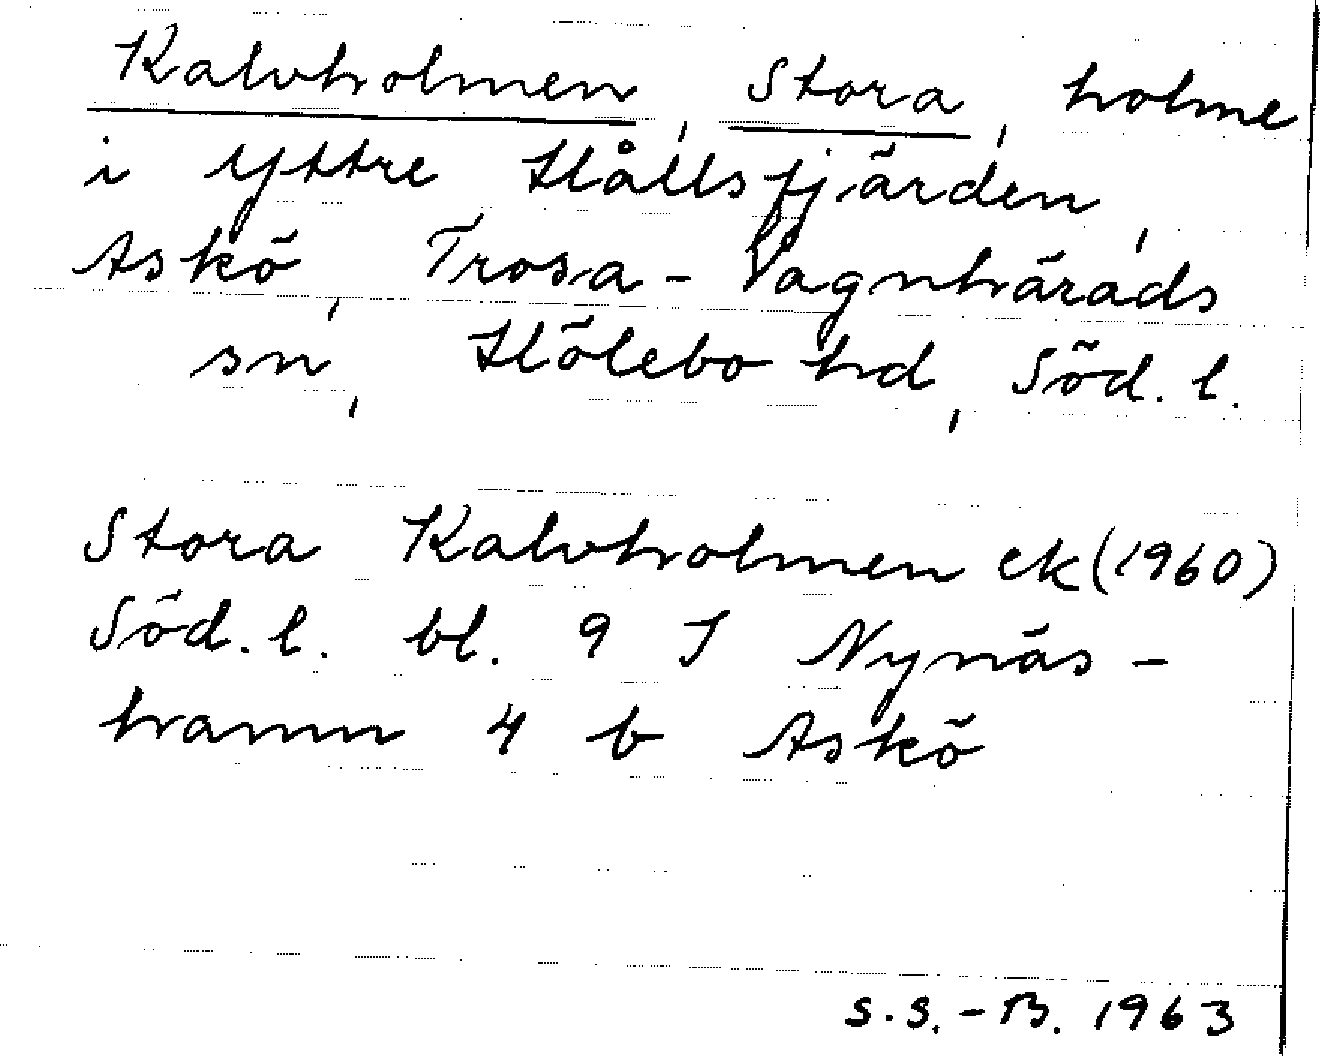 Kalvholmen, Stora, holme
i Yttre Hållsfjärden,
Askö, Trosa-Vagnhärads
sn, Hölebo hd, Söd. l.
Stora Kalvholmen ek (1960)
Söd. l. bl. 9 I Nynäs-
hamn 4 b Askö
S.S.-B. 1963